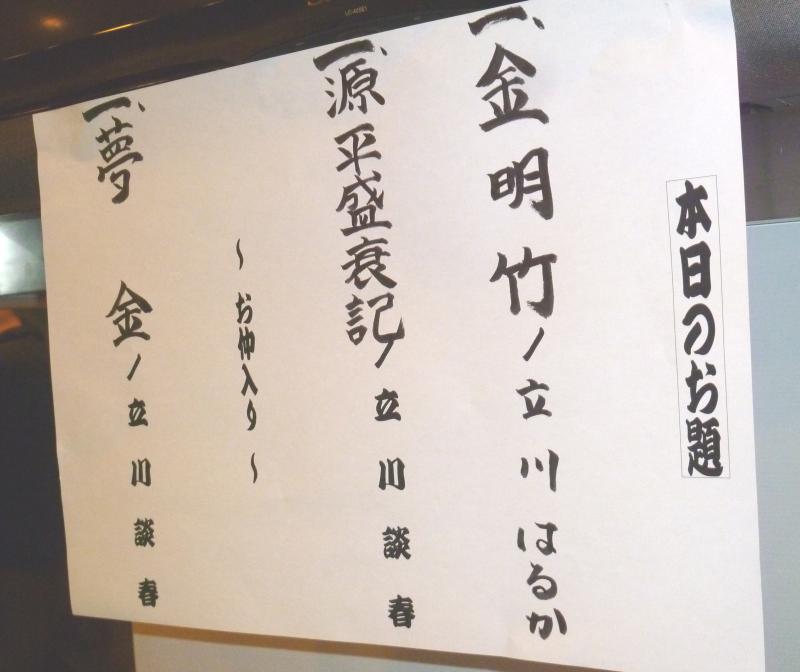 本日のお題
一、金明竹／立川はるか
一、源平盛衰記／立川談春
～お仲入り～
一、夢金／立川談春